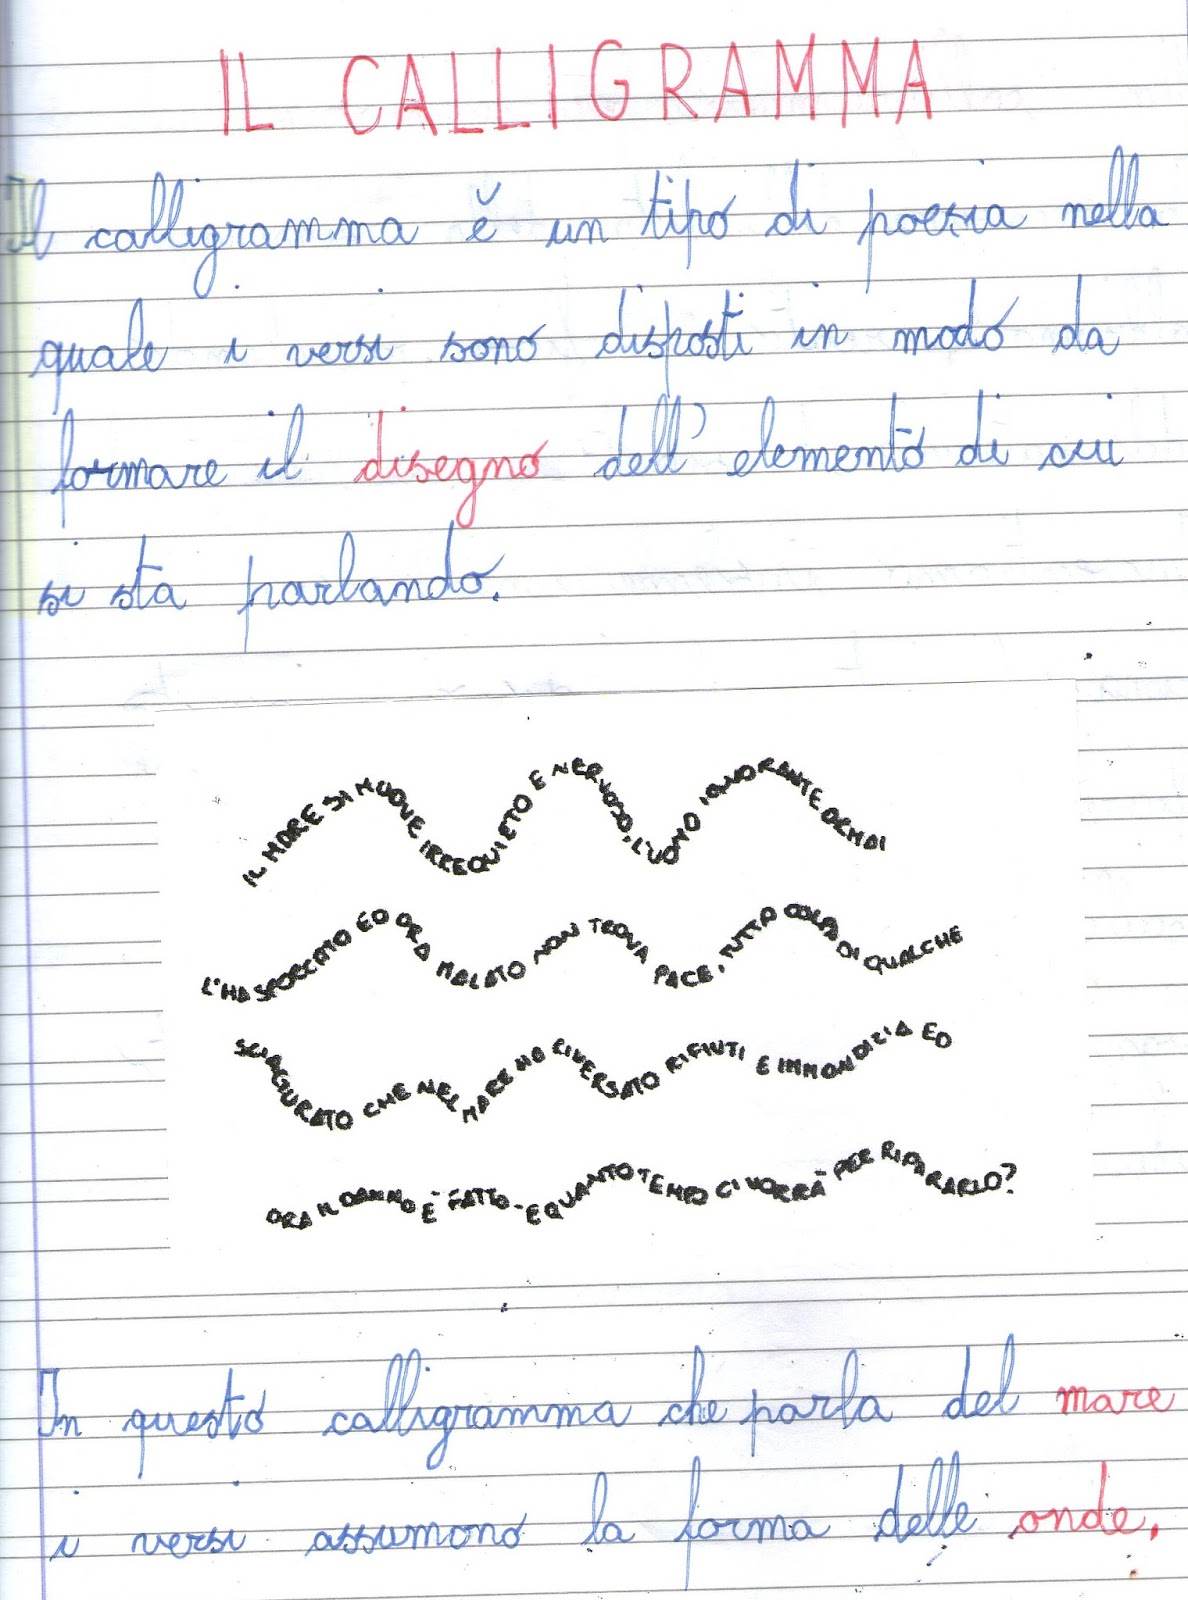 IL CALLIGRAMMA
Il calligramma è un tipo di poesia nella
quale i versi sono disposti in modo da
formare il disegno dell'elemento di cui
si sta parlando.
IL MARE SI MUOVE IRREQUIETO E NERVOSO, L'UOMO IGNORANTE ORMAI
L'HA SPORCATO ED ORA MALATO NON TROVA PACE, TUTTA COLPA DI QUALCHE
SCIAGURATO CHE NEL MARE HA RIVERSATO RIFIUTI E IMMONDIZIA ED
ORA IL DANNO È FATTO-E QUANTO TEMPO CI VORRÀ PER RIPARARLO?
In questo calligramma che parla del mare
i versi assumono la forma delle onde.